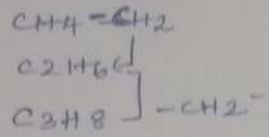 CH4 = CH2
C2H6
C3H8 - CH2-